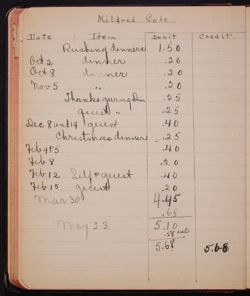 Mildred Rode
Date Item Debit Credit
Rushing dinners 1.50
Oct 2 dinner .20
Oct 8 dinner .20
Nov 5 " .20
Thanksgiving Din .25
guest " .25
Dec 8 and 14 guest .40
Christmas dinner .25
Feb 4&5 .40
Feb 8 .20
Feb 12 Self & guest .40
Feb 15 guest .20
Mar 30 4.45
.65
May 23 5.10
.58
5.68 5.68